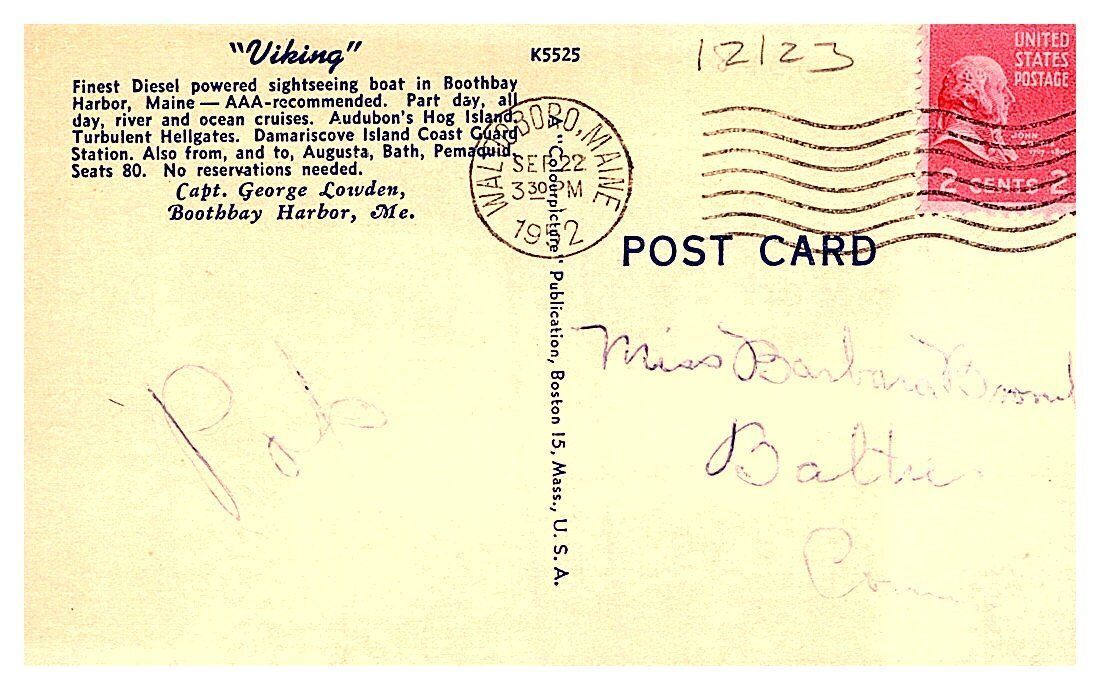 "Viking"
Finest Diesel powered sightseeing boat in Boothbay
Harbor, Maine — AAA-recommended. Part day, all
day, river and ocean cruises. Audubon's Hog Island.
Turbulent Hellgates. Damariscove Island Coast Guard
Station. Also from, and to, Augusta, Bath, Pemaquid.
Seats 80. No reservations needed.
Capt. George Lowden,
Boothbay Harbor, Me.
K5525
12123
UNITED
STATES
POSTAGE
JOHN
2 CENTS 2
WALDOBORO, MAINE
SEP 22
3 30 PM
1952
POST CARD
A "Colourpicture" Publication, Boston 15, Mass., U. S. A.
Miss Barbara
Baltic
Conn